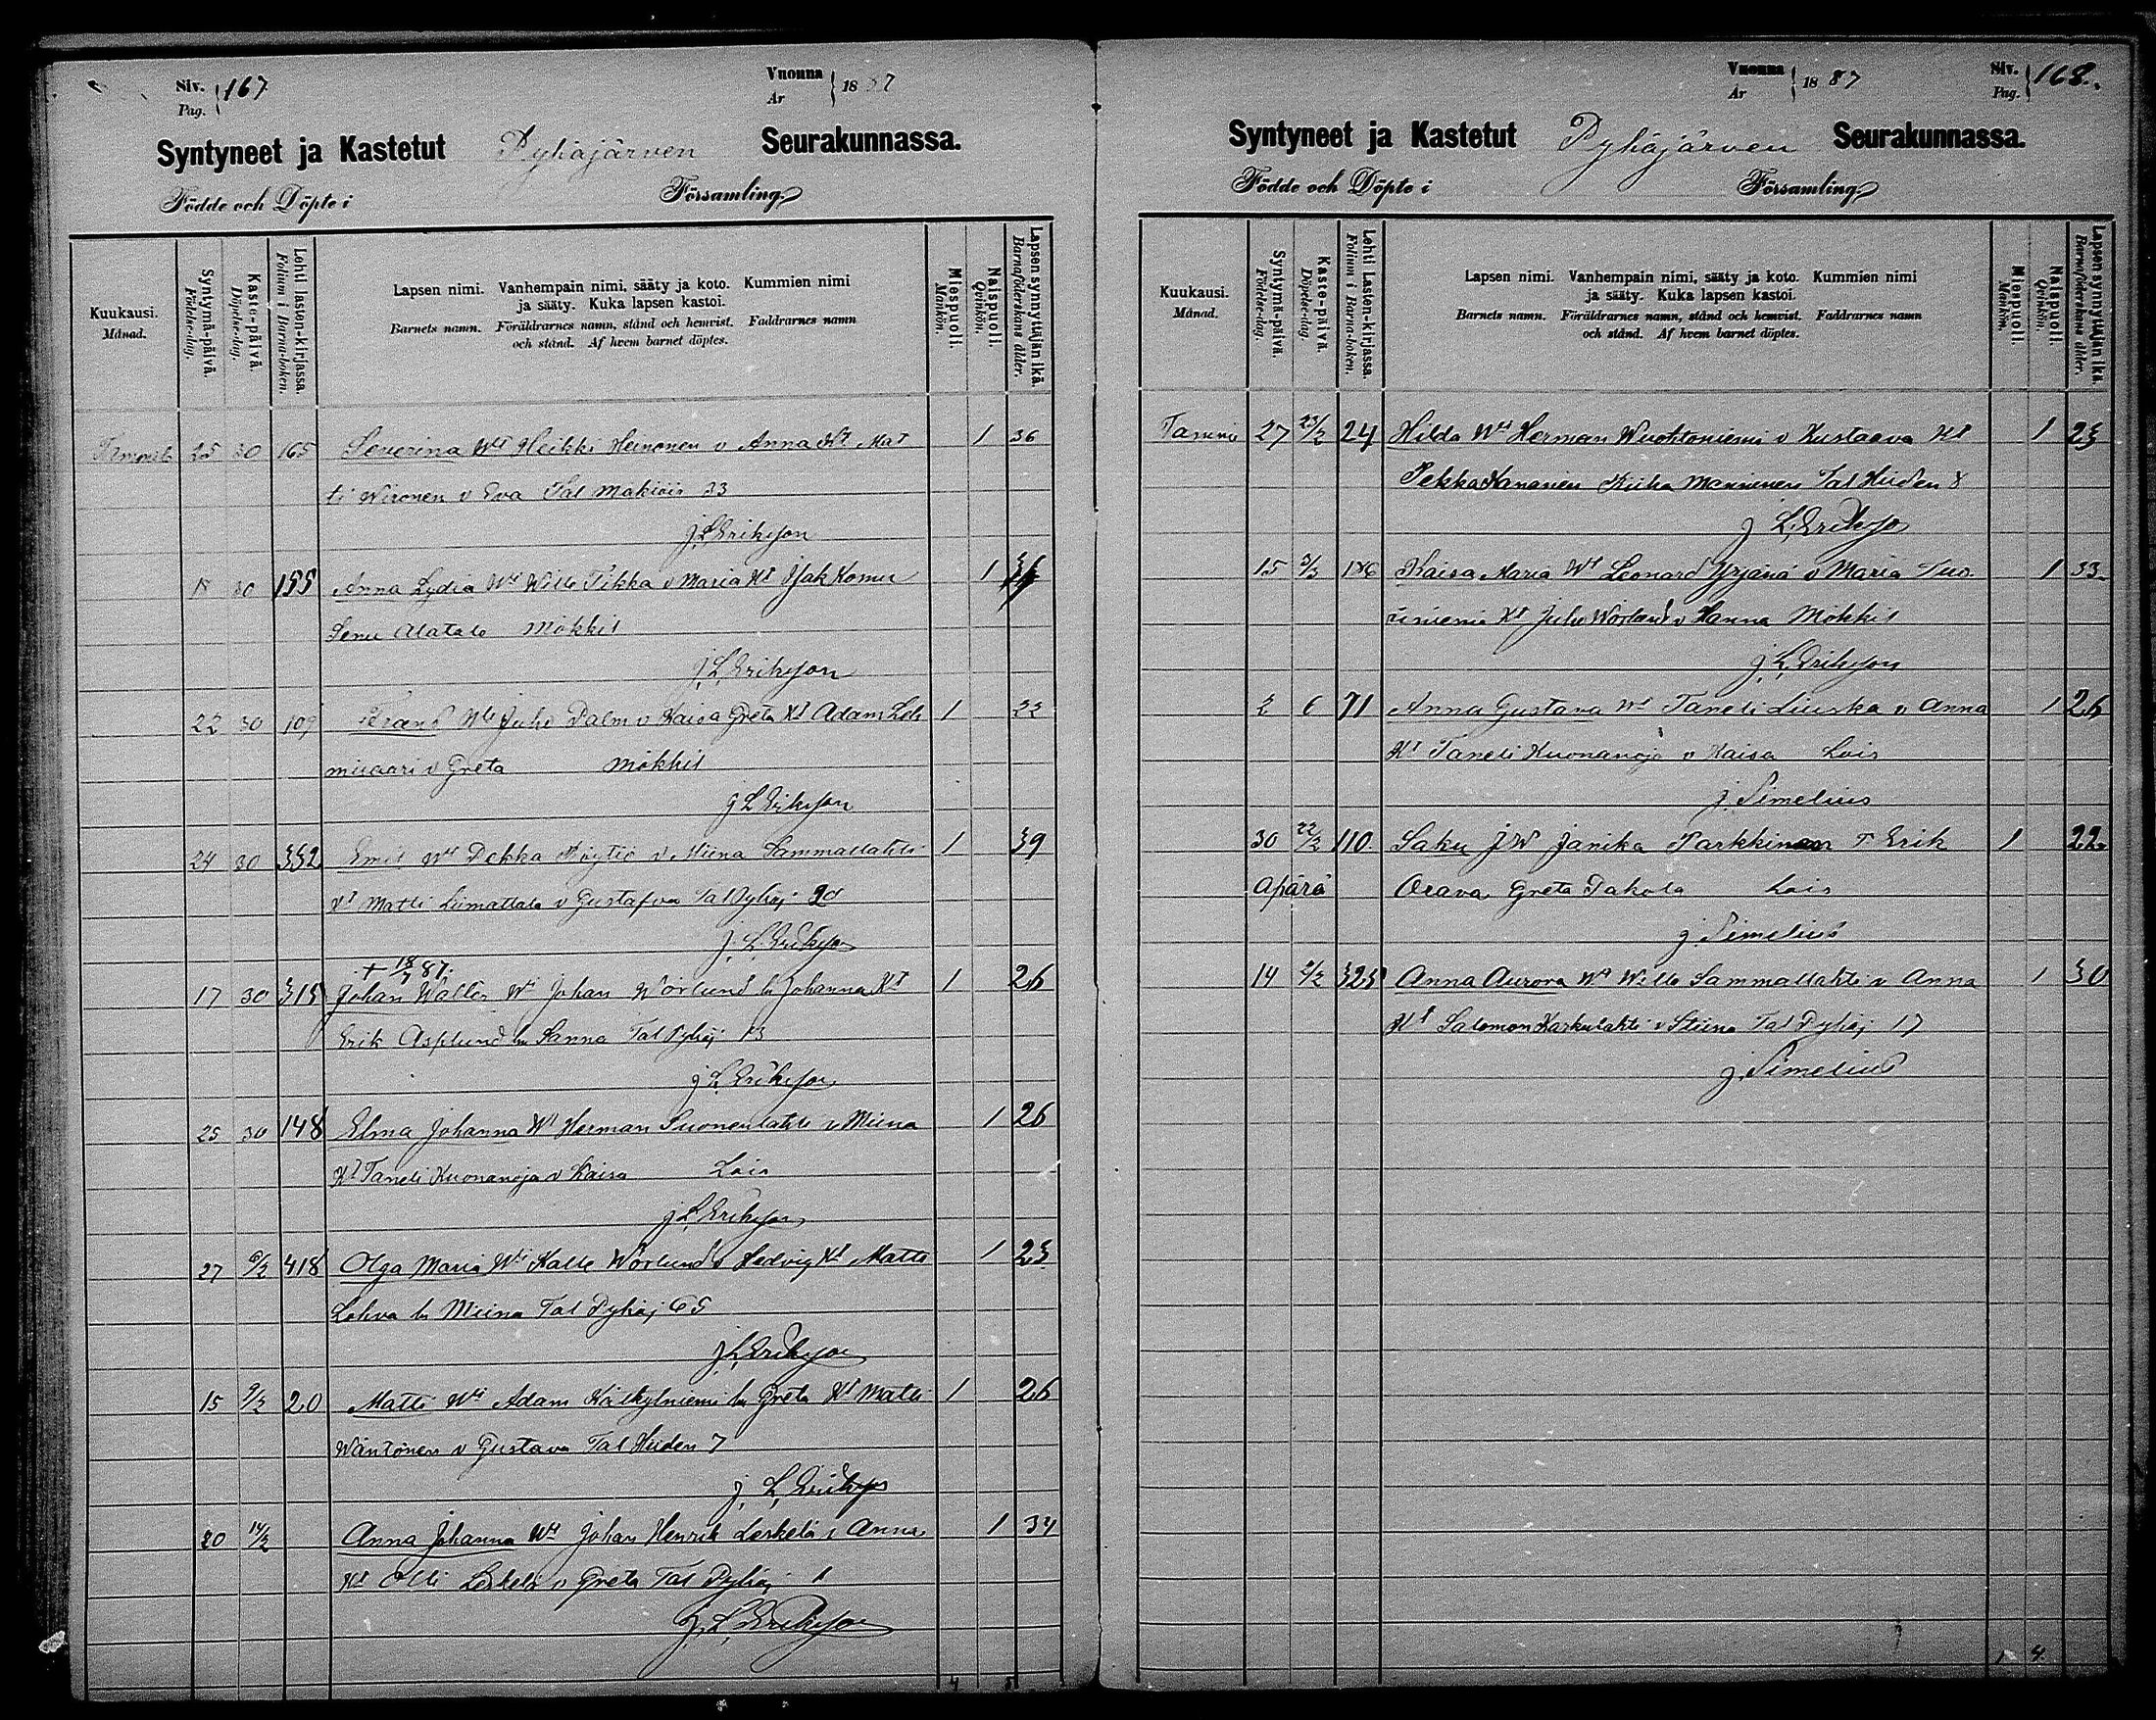 Siv. Pag. 167 Vuonna År 1887
Syntyneet ja Kastetut Pyhäjärven Seurakunnassa.
Födde och Döpte i Församling.
Kuukausi. Månad. Syntymä-päivä. Födelse-dag. Kaste-päivä. Döpelse-dag. Lehti lasten-kirjassa. Folium i Barna-boken. Lapsen nimi. Vanhempain nimi, sääty ja koto. Kummien nimi
ja sääty. Kuka lapsen kastoi.
Barnets namn. Föräldrarnes namn, stånd och hemvist. Faddrarnes namn
och stånd. Af hvem barnet döptes. Miespuoli. Mankön. Naispuoli. Qvinkön. Lapsen synnyttäjän ikä. Barnaföderskans ålder.
25 30 165 Severina Wt Heikki Heinonen v Anna Kt Mat 1 36
ti Wironen v Eva Tal Makiois 33
J. L. Erikson
15 30 155 Anna Lydia Wt Wille Tikka v Maria Kt Isak Komu 1
Alatalo Mökkil
J. L. Erikson
22 30 109 Frans Wt Juho Palm v Kaisa Greta Kt Adam Leh 1 22
miraari v Greta Mökkil
J L Erikson
24 30 332 Emil Wt Pekka Pöytiö v Miina Sammallahti 1 39
Kt Matti Liimattala v Gustafva Tal Pyhäj 20
J. L. Erikson
+ 18/7 87.
17 30 315 Johan Walter Wt Johan Wörlund h Johanna Kt 1 26
Erik Asplund h Sanna Tal Pyhäj 13
J L Erikson
25 30 148 Elma Johanna Wt Herman Suonenlahti v Miina 1 26
Kt Taneli Kuonanoja v Kaisa Lois
J L Erikson
27 6/2 418 Olga Maria Wt Kalle Wörlund v Hedvig Kt Matti 1 23
Lohva h Miina Tal Pyhäj 65
J L Erikson
15 9/2 20 Matti Wt Adam Kälkylniemi h Greta Kt Matti 1 26
Wäntönen v Gustava Tal Hiiden 7
J. L. Erikson
20 14/2 Anna Johanna Wt Johan Henrik Leskelä v Anna 1 34
Kt Olli Leskelä v Greta Tal Pyhäj 1
J. L. Erikson
4 5
Vuonna År 1887 Siv. Pag. 168.
Syntyneet ja Kastetut Pyhäjärven Seurakunnassa.
Födde och Döpte i Församling.
Kuukausi. Månad. Syntymä-päivä. Födelse-dag. Kaste-päivä. Döpelse-dag. Lehti Lasten-kirjassa. Folium i Barna-boken. Lapsen nimi. Vanhempain nimi, sääty ja koto. Kummien nimi
ja sääty. Kuka lapsen kastoi.
Barnets namn. Föräldrarnes namn, stånd och hemvist. Faddrarnes namn
och stånd. Af hvem barnet döptes. Miespuoli. Mankön. Naispuoli. Qvinkön. Lapsen synnyttäjän ikä. Barnaföderskans ålder.
Tammi 27 23/2 24 Hilda Wt Herman Wuohtoniemi v Kustaava Kt 1 23
Pekka Kananen Manninen Tal Hiiden 8
J L. Erikson
15 3/3 Kaisa Maria Wt Leonard Yrjänä v Maria Suo 1 33
niemi Kt Juho Wörlund v Hanna Mökkil
J. L. Erikson
2 6 71 Anna Gustava Wt Taneli Liuska v Anna 1 26
Kt Taneli Kuonanoja v Kaisa Lois
J. Simelius
30 22/2 110 Saku J W Janika Parkkinen T Erik 1 22
apärä Orava Greta Takola Lois
J. Simelius
14 2/2 325 Anna Aurora Wt Wille Sammallahti v Anna 1 30
Kt Salomon Karkulahti v Stiina Tal Pyhäj 17
J. Simelius
1 4